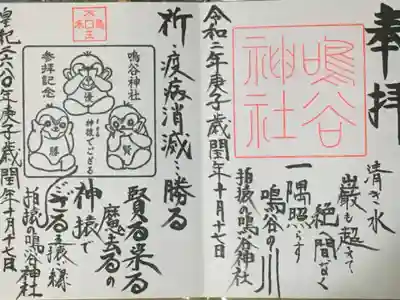 奉拝
鳴谷
神社
清き水
巌も超えて
絶へ間なく
一隅照らす
鳴谷の川
拍猿の鳴谷神社
令和二年庚子歳閏年十月十七日
祈・疫病消滅・勝る
大口王
鳴谷神社
参拝記念
優
神猿でござる
勝
賢
賢る来る
魔去るの
神猿で
ござる
拍猿の鳴谷神社
皇紀二六八〇年庚子歳閏年十月十七日